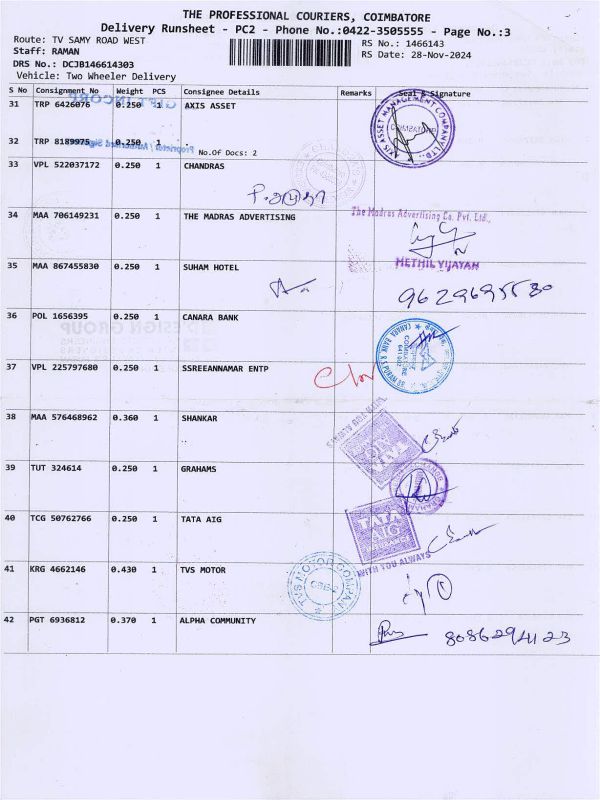 THE PROFESSIONAL COURIERS, COIMBATORE
Delivery Runsheet - PC2 - Phone No.:0422-3505555 - Page No.:3
Route: TV SAMY ROAD WEST
Staff: RAMAN
RS No.: 1466143
RS Date: 28-Nov-2024
DRS No.: DCJB146614303
Vehicle: Two Wheeler Delivery
S No Consignment No Weight PCS Consignee Details Remarks Seal & Signature
31 TRP 6426076 0.250 1 AXIS ASSET
AXIS ASSET MANAGEMENT COMPANY LTD.
32 TRP 8189975 0.250 1 No.Of Docs: 2
33 VPL 522037172 0.250 1 CHANDRAS
34 MAA 706149231 0.250 1 THE MADRAS ADVERTISING
The Madras Advertising Co. Pvt. Ltd.,
METHIL VIJAYAN
35 MAA 867455830 0.250 1 SUHAM HOTEL
36 POL 1656395 0.250 1 CANARA BANK
CANARA BANK R S PURAM BR
COIMBATORE
37 VPL 225797680 0.250 1 SSREEANNAMAR ENTP
38 MAA 576468962 0.360 1 SHANKAR
39 TUT 324614 0.250 1 GRAHAMS
40 TCG 50762766 0.250 1 TATA AIG
TATA
AIG
WITH YOU ALWAYS
41 KRG 4662146 0.430 1 TVS MOTOR
TVS MOTOR COMPANY
42 PGT 6936812 0.370 1 ALPHA COMMUNITY
8086294123